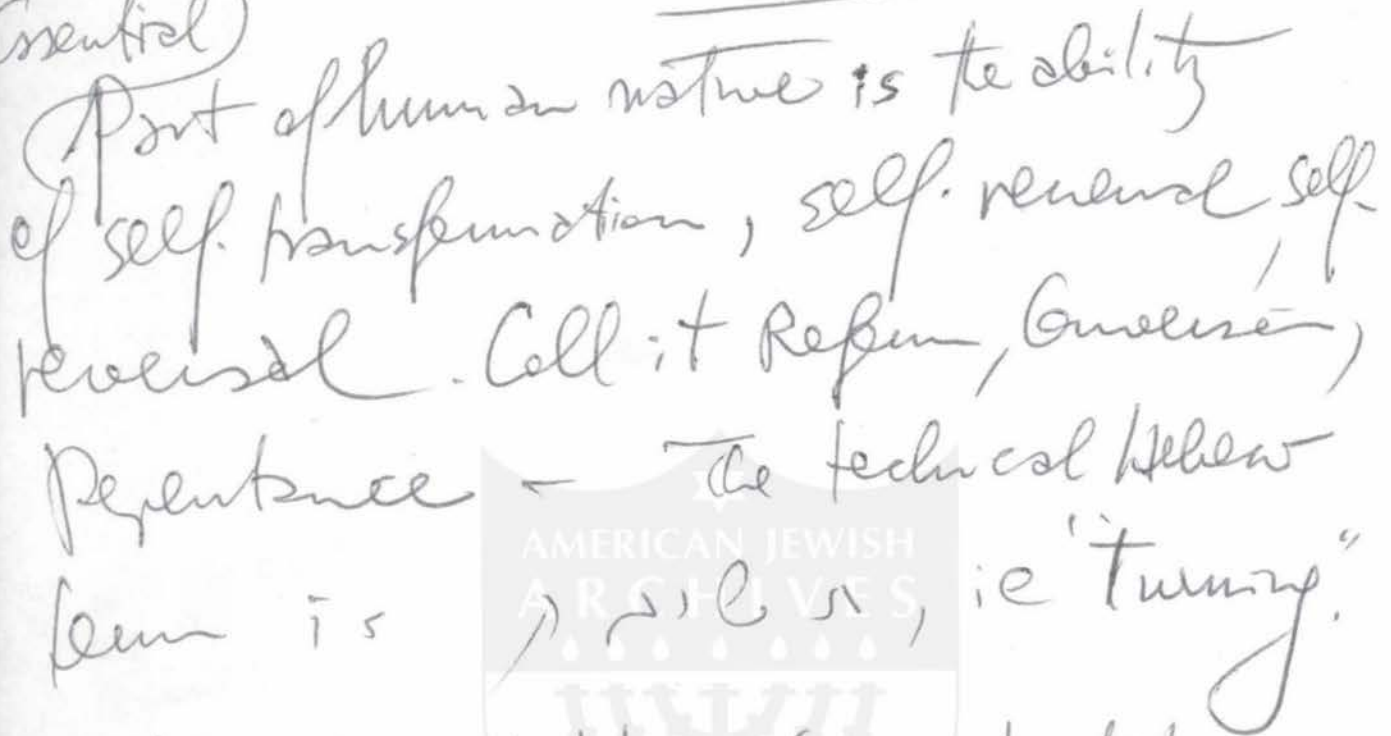 Essential)
(Part of human nature is the ability
of self-transformation, self-renewal, self-
reversal. Call it Reform, Conversion,
Repentance – The technical Hebrew
term is תשובה, ie "Turning."
AMERICAN JEWISH
ARCHIVES